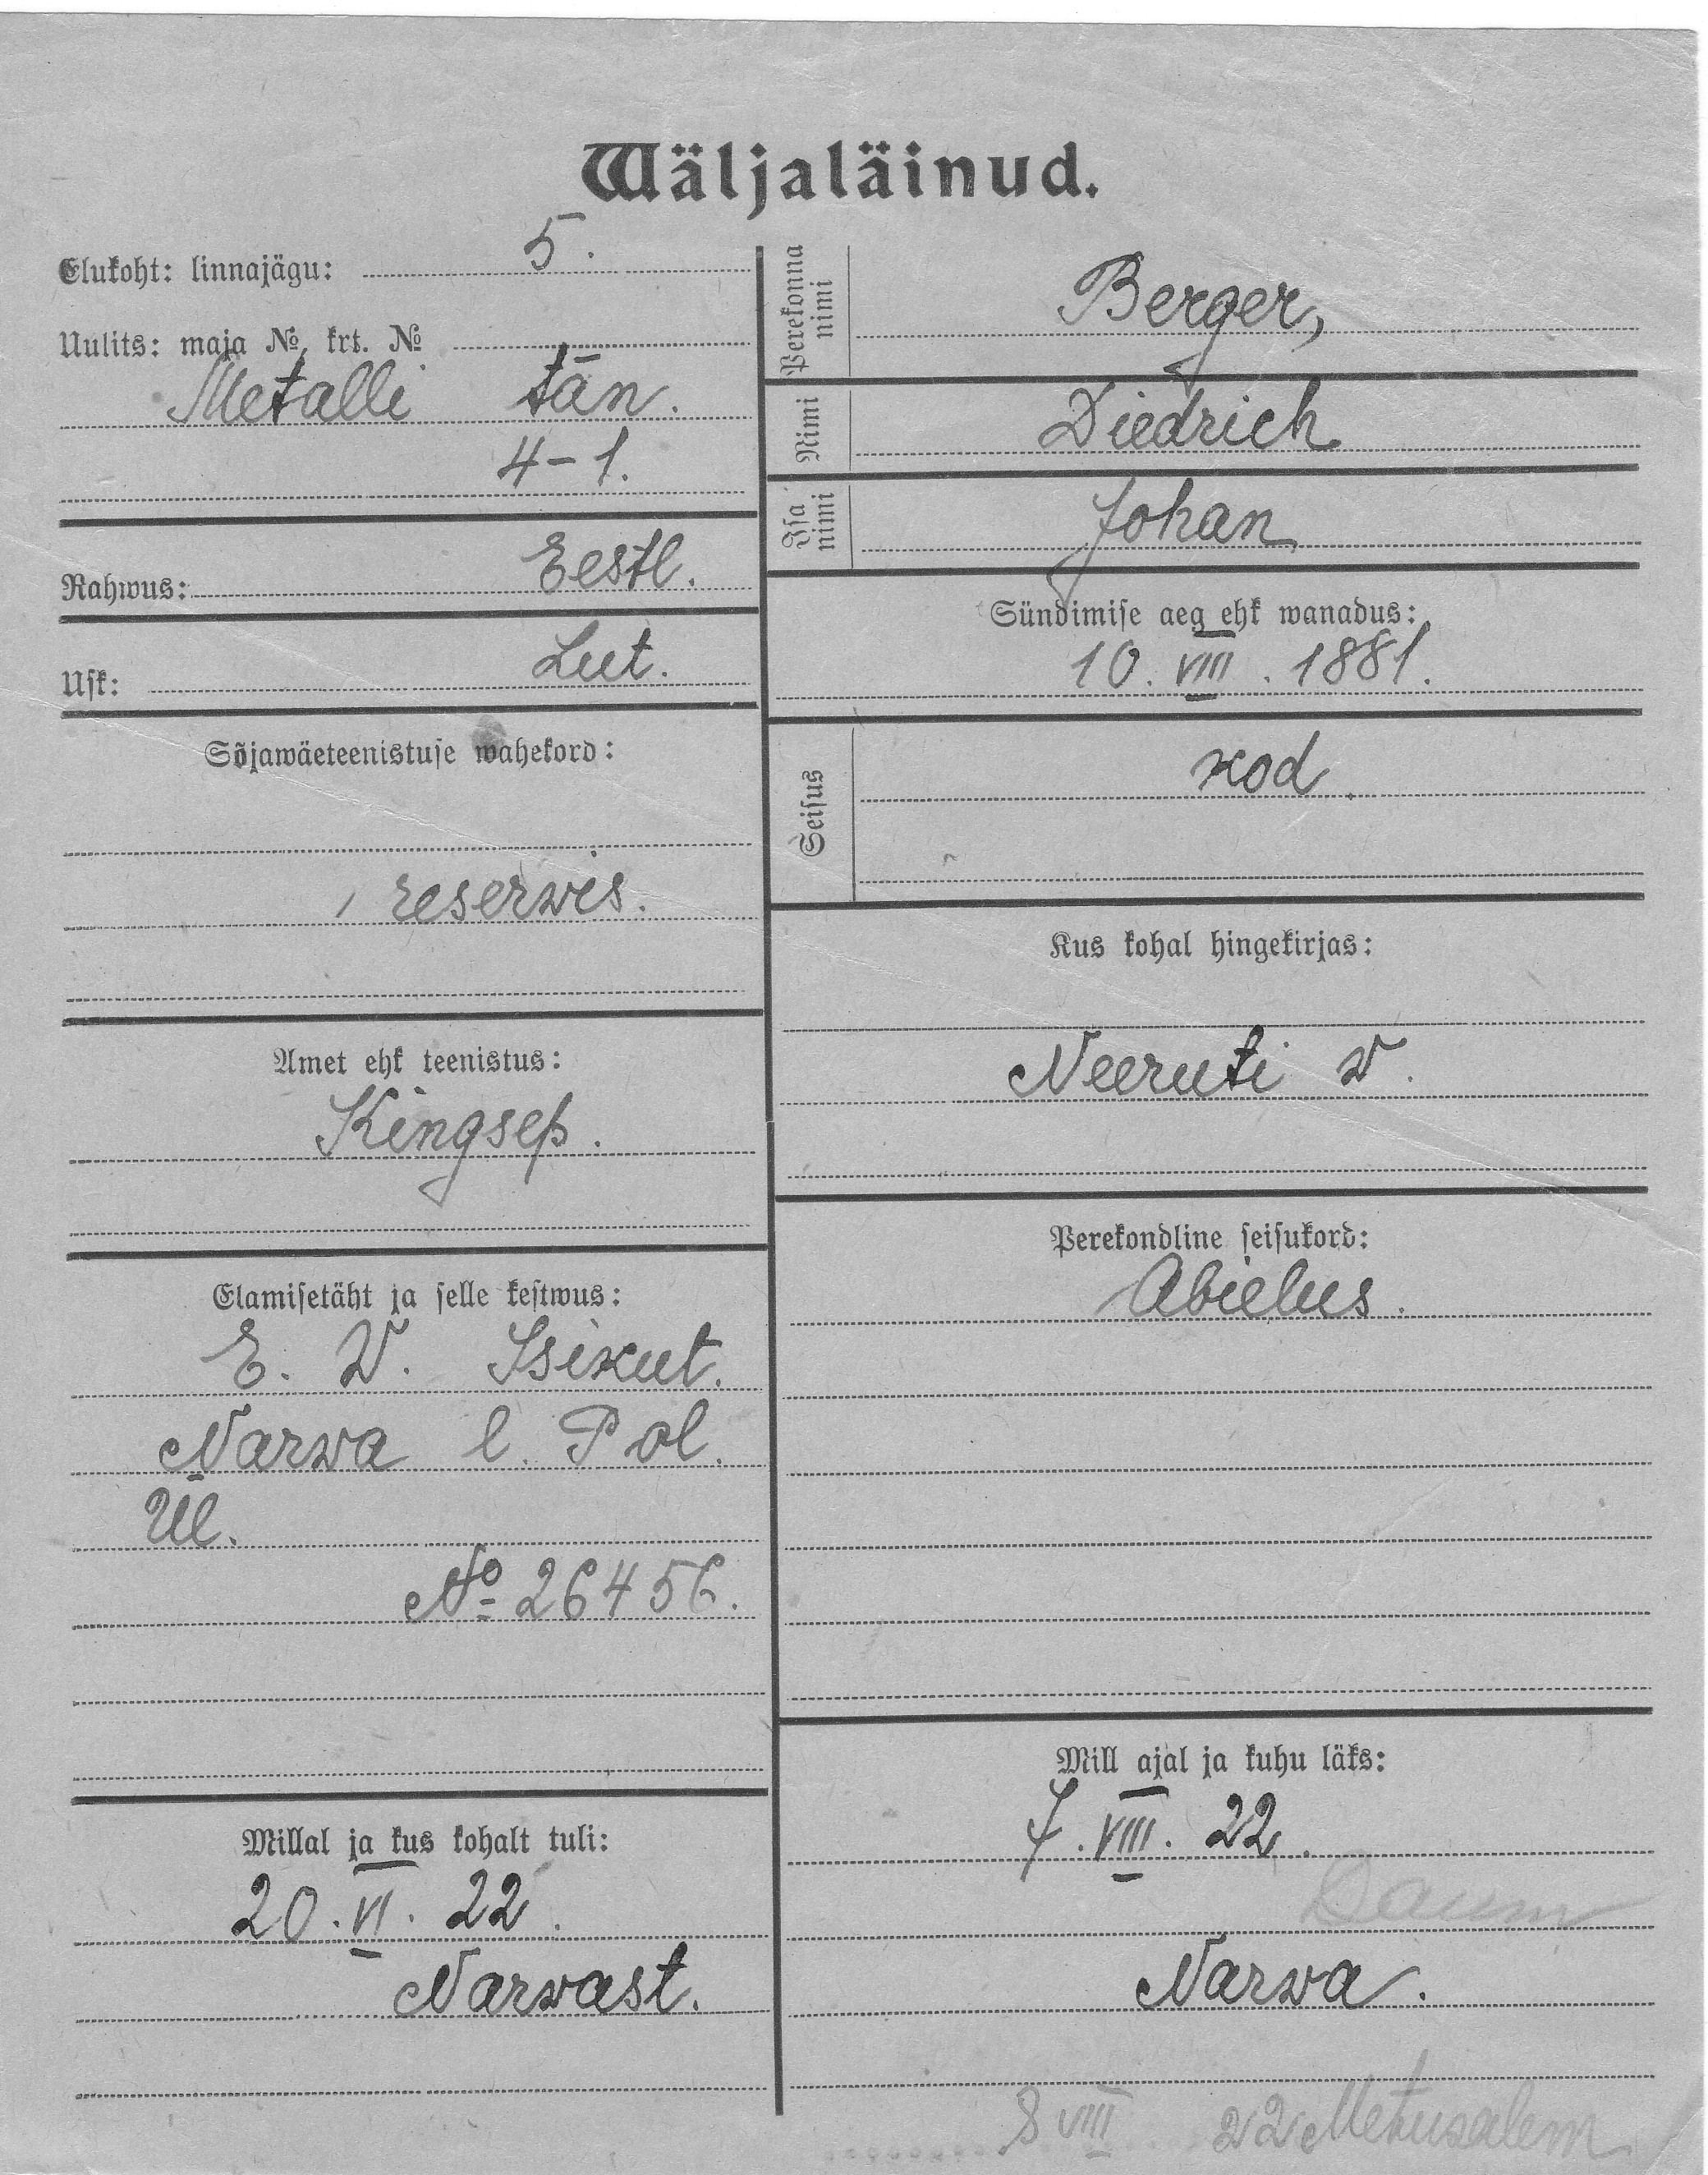 Wäljaläinud.
Elukoht: linnajägu: 5.
Uulits: maja №, krt. №
Metalli tän.
4-1.
Rahwus: Eestl.
Usk: Lut.
Sõjawäeteenistuse wahekord:
reserwis.
Amet ehk teenistus:
Kingsep.
Elamisetäht ja selle kestwus:
E. W. Isikut.
Narwa l. Pol.
Ül.
№ 26456.
Millal ja kus kohalt tuli:
20. VI. 22.
Narwast.
Perekonna nimi
Berger,
Nimi
Diedrich
Isa nimi
Johan
Sündimise aeg ehk wanadus:
10. VIII. 1881.
Seisus
kod.
Kus kohal hingekirjas:
Neeruti w.
Perekondline seisukord:
Abielus.
Mill ajal ja kuhu läks:
7. VIII. 22.
Narwa.
8 VIII 22 Metusalem